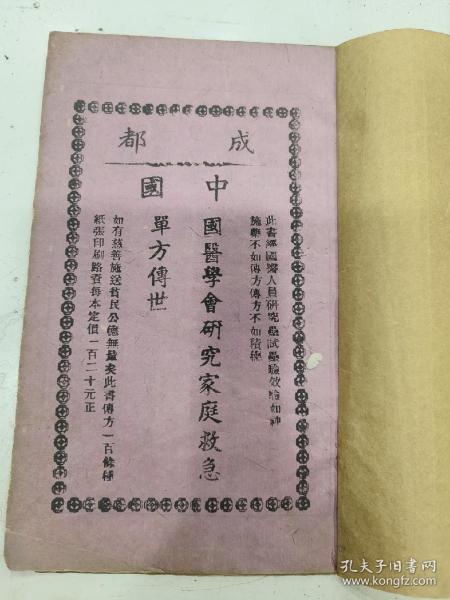 成都
中國
此書經國醫人員研究屢試屢驗效驗如神
施藥不如傳方傳方不如積德
國醫學會研究家庭救急
單方傳世
如有慈善施送貧民公德無量矣此書傳方一百餘種
紙張印刷路資每本定價一百二十元正
孔夫子旧书网
www.kongfz.com